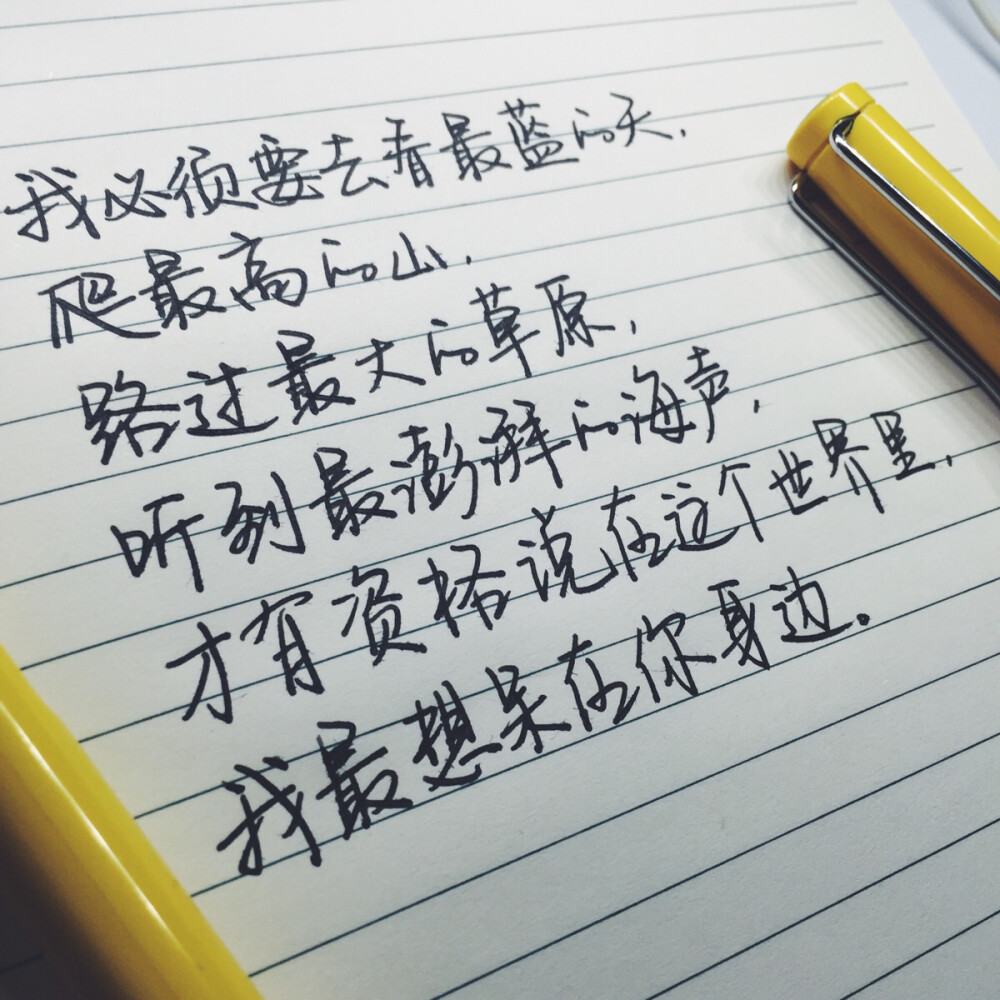 我必须要去看最蓝的天，
爬最高的山，
路过最大的草原，
听到最澎湃的海声，
才有资格说在这个世界里，
我最想呆在你身边。